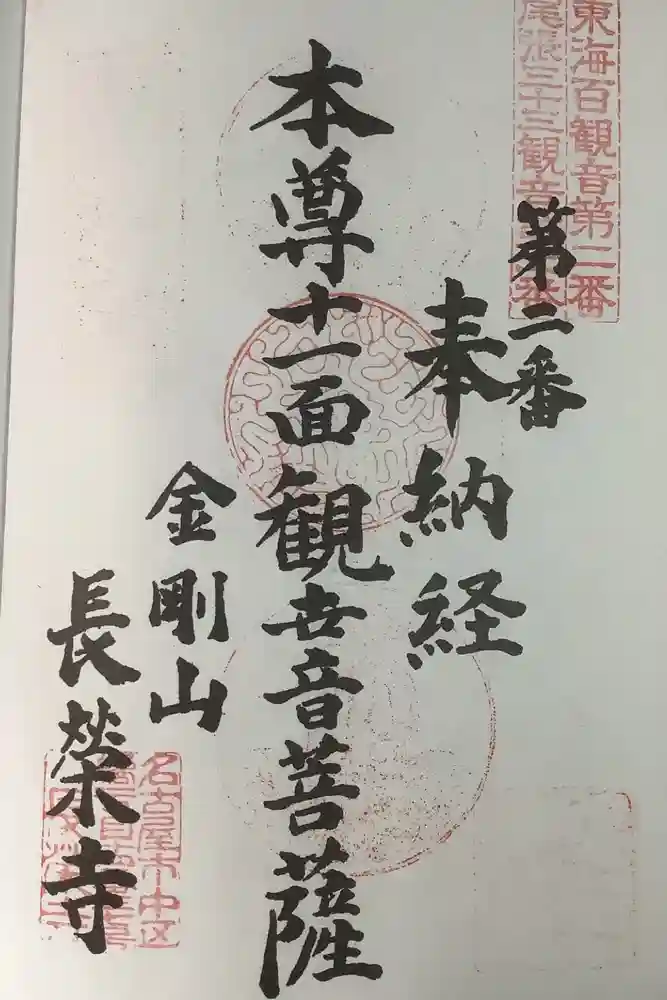 東海百観音第二番
尾張三十三観音
番
第二番
奉納経
本尊十一面観世音菩薩
金剛山
長榮寺
名古屋市中区